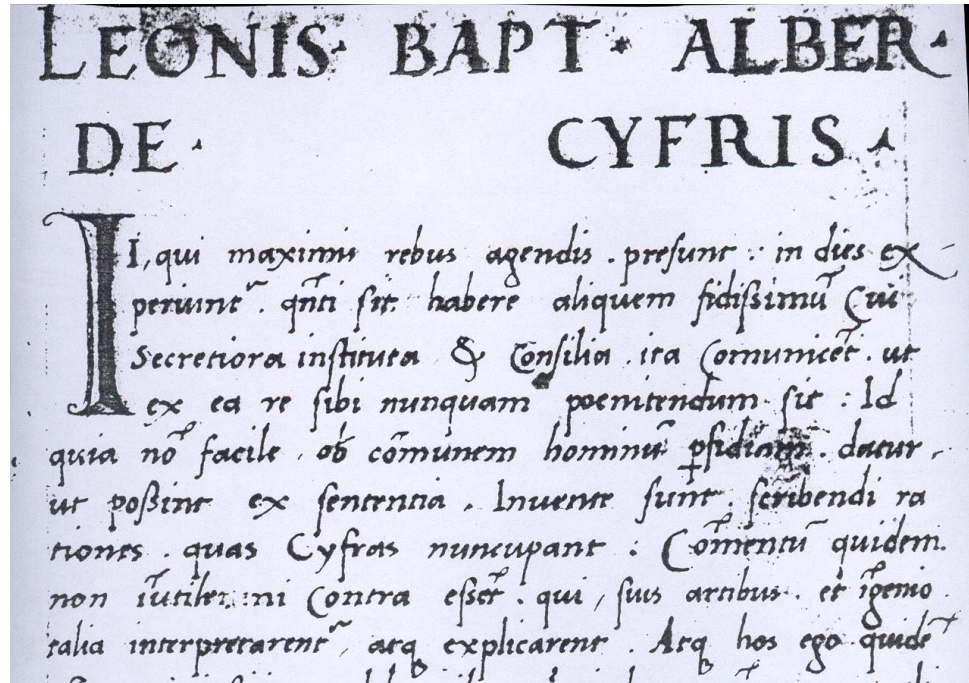 LEONIS· BAPT· ALBER·
DE· CYFRIS·
II, qui maximis rebus agendis . presunt : in dies ex
periunt᷑ . qñti sit habere aliquem fidissimũ Cui
Secretiora instituta & Consilia . ita Comunicẽt . ut
ex ea re sibi nunquam poenitendum sit : Id
quia nõ facile ob cõmunem hominũ ꝑfidiam . datur ,
ut poßint ex sententia . Inuente sunt scribendi ra
tiones . quas Cyfras nuncupant : Cõmentũ quidem
non iũtile ni Contra eßẽt . qui , suis artibus . et ĩgenio
talia interpretarent᷑ , atq explicarent . Atq hos ego quidẽ